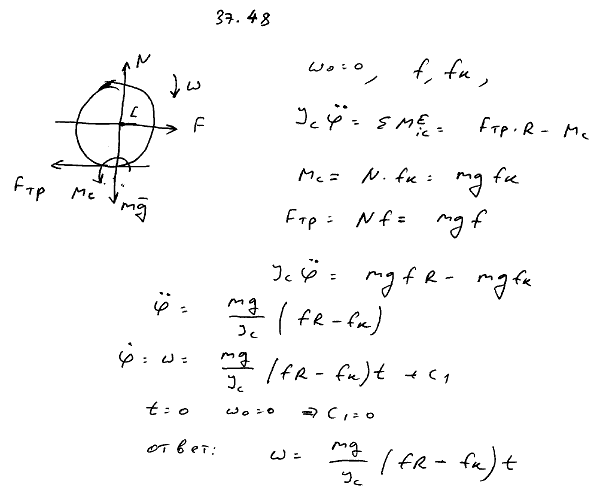 37.48
N
ω
C
F
Fтр
Mc
mg̅
ω₀=0, f, fк,
Jc φ̈ = ΣM^E_ic = Fтр·R − Mc
Mc = N·fк = mgfк
Fтр = Nf = mgf
Jc φ̈ = mgfR − mgfк
φ̈ = mg/Jc (fR−fк)
φ̇ = ω = mg/Jc (fR−fк)t + C₁
t=0 ω₀=0 ⇒ C₁=0
ответ: ω = mg/Jc (fR−fк)t